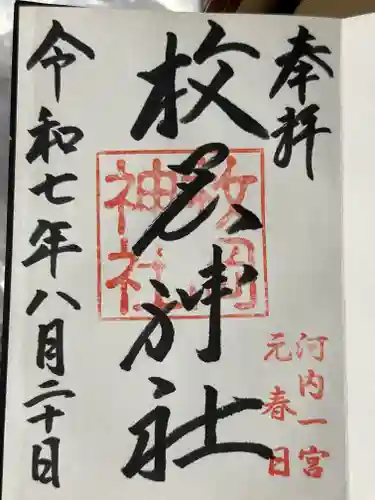 奉拝
河内一宮
元春日
枚岡神社
枚岡神社
令和七年八月二十日